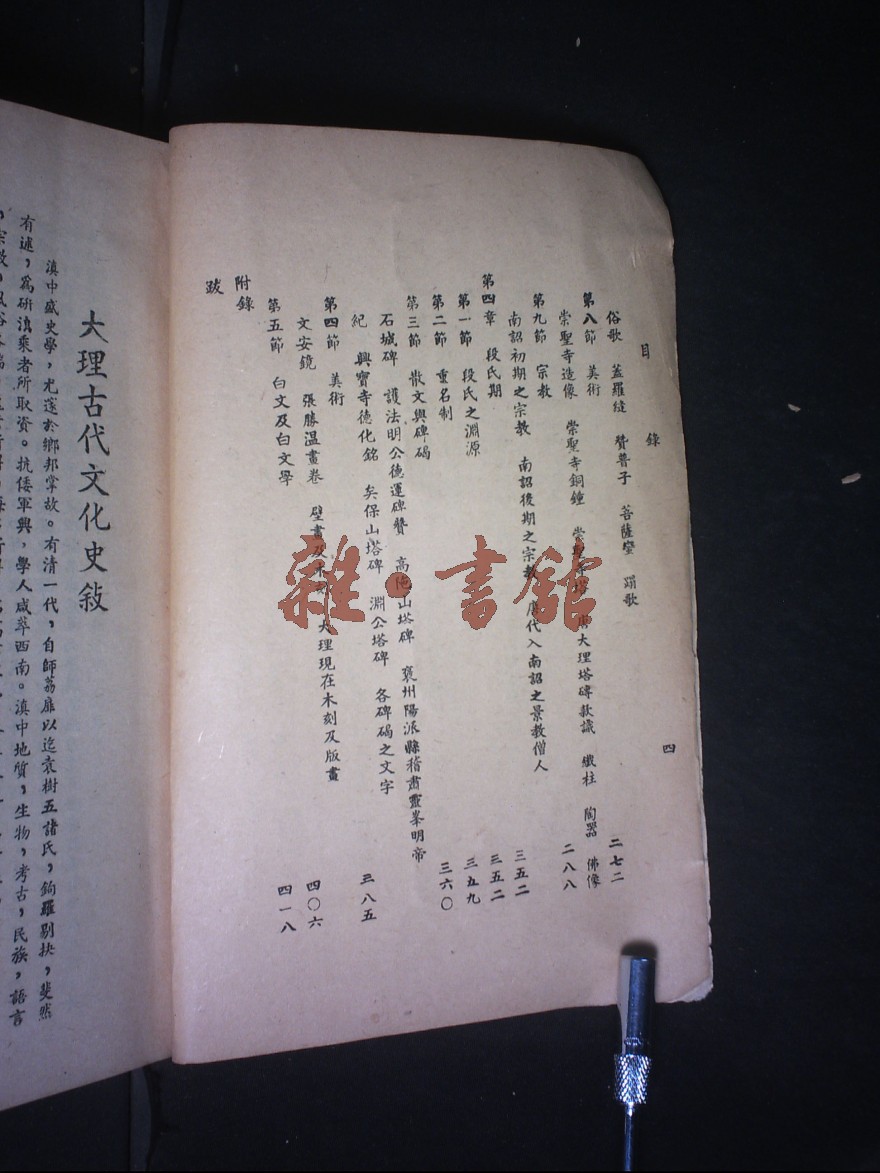 目錄 四
俗歌 蓋羅縫 贊普子 菩薩蠻 踏歌
第八節 美術 二七二
崇聖寺造像 崇聖寺銅鐘 崇聖寺塔 大理塔磚款識 鐵柱 陶器 佛像
第九節 宗教 二八八
南詔初期之宗教 南詔後期之宗教 唐代入南詔之景教僧人
第四章 段氏期 三五二
第一節 段氏之淵源 三五二
第二節 重名制 三五九
第三節 散文與碑碣 三六〇
石城碑 護法明公德運碑贊 高陁山塔碑 褒州陽派縣稽肅靈峯明帝
紀 興寶寺德化銘 矣保山塔碑 淵公塔碑 各碑碣之文字
第四節 美術 三八五
文安鏡 張勝溫畫卷 壁畫及木刻 大理現在木刻及版畫
第五節 白文及白文學 四〇六
附錄 四一八
跋
大理古代文化史敍
滇中盛史學，尤邃於鄉邦掌故。有清一代，自師荔扉以迄袁樹五諸氏，鉤羅剔抉，斐然
有述，爲研滇乘者所取資。抗倭軍興，學人咸萃西南。滇中地質，生物，考古，民族，語言
，宗教，風俗各
雜·書館